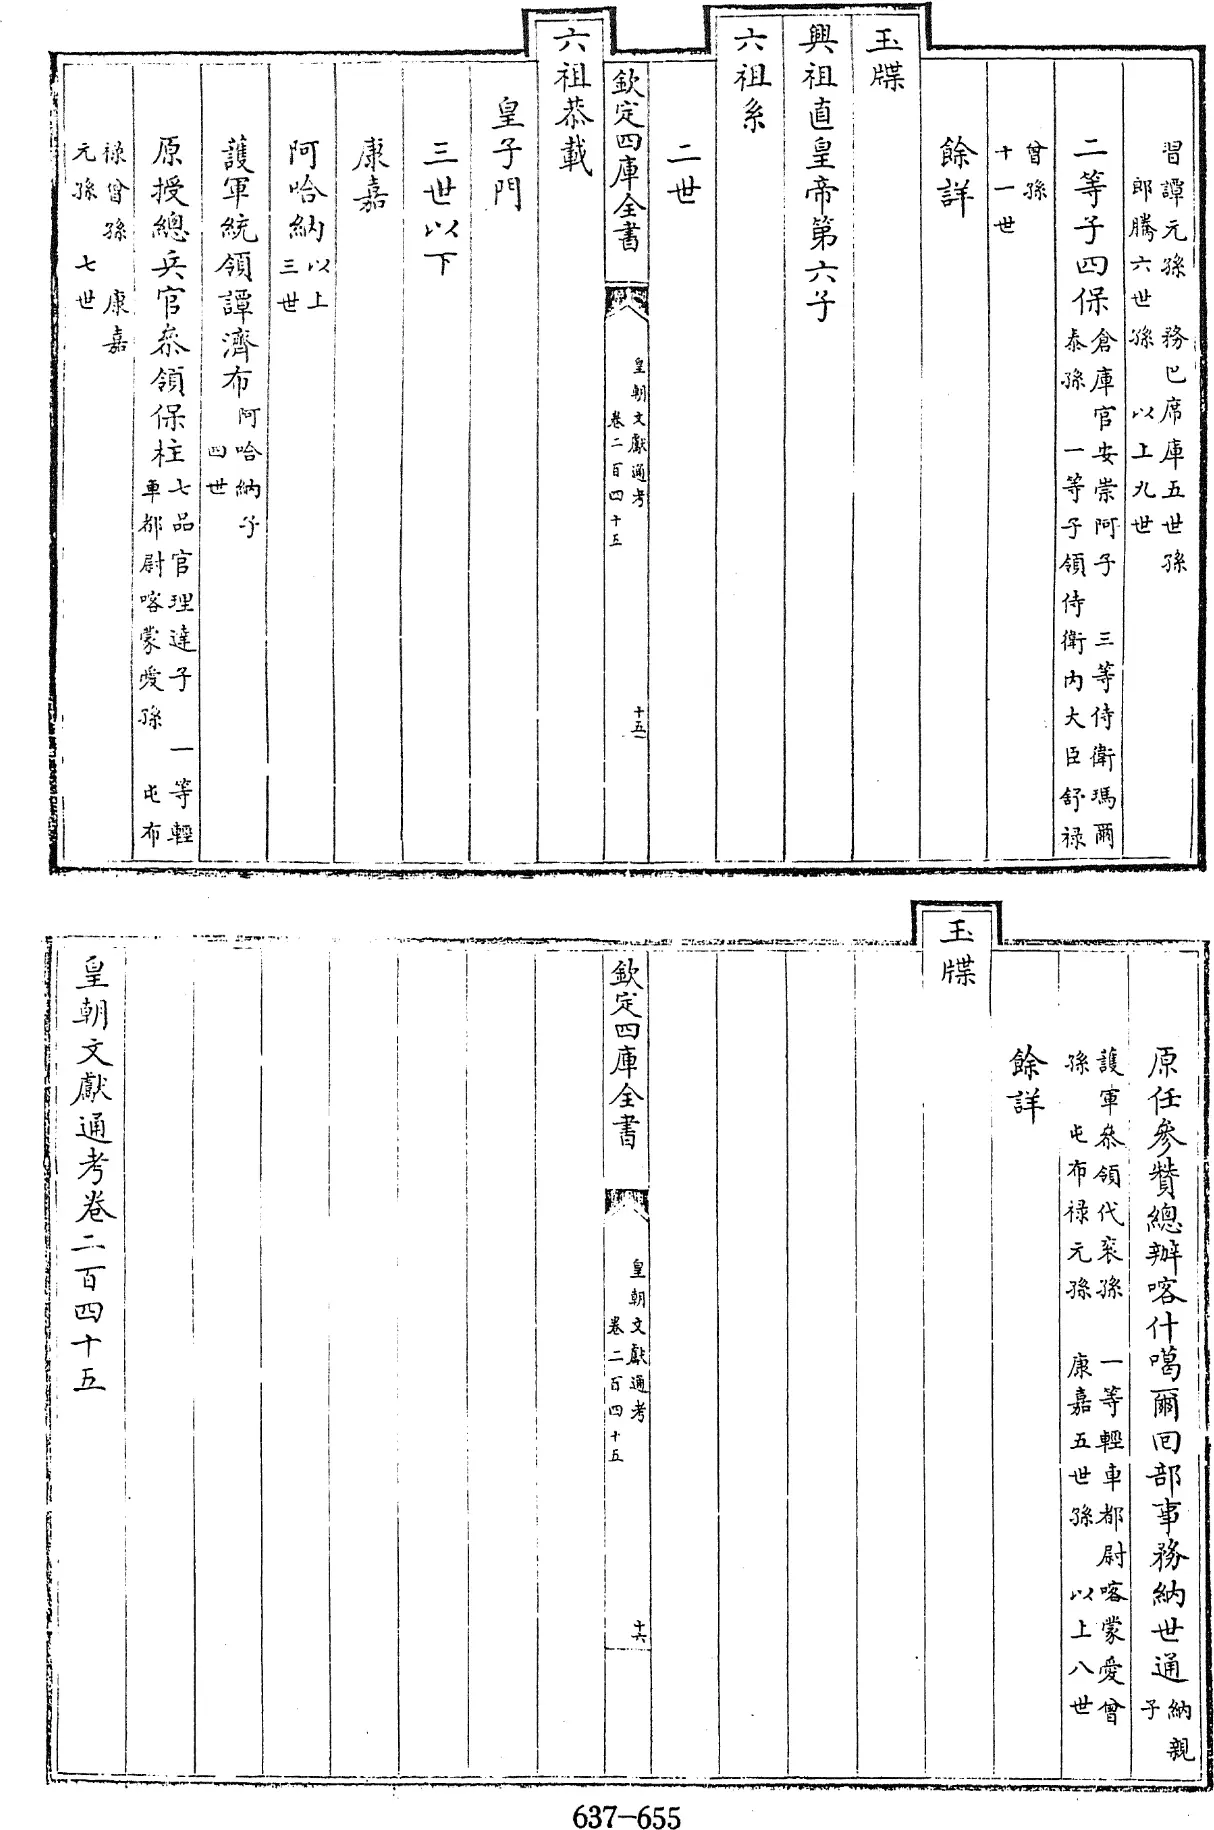 習譚元孫　務巴席庫五世孫
郎騰六世孫　以上九世
二等子四保
倉庫官安崇阿子　三等侍衛瑪爾
泰孫　一等子領侍衛內大臣舒祿
曾孫
十一世
餘詳
玉牒
興祖直皇帝第六子
六祖系
二世
欽定四庫全書
皇朝文獻通考
卷二百四十五
十五
六祖恭載
皇子門
三世以下
康嘉
阿哈納
以上
三世
護軍統領譚濟布
阿哈納子
四世
原授總兵官叅領保柱
七品官理達子　一等輕
車都尉喀蒙愛孫　屯布
祿曾孫　康嘉
元孫　七世
原任參贊總辦喀什噶爾回部事務納世通
納親
子
護軍叅領代衮孫　一等輕車都尉喀蒙愛曾
孫　屯布祿元孫　康嘉五世孫　以上八世
餘詳
玉牒
欽定四庫全書
皇朝文獻通考
卷二百四十五
十六
皇朝文獻通考卷二百四十五
637-655